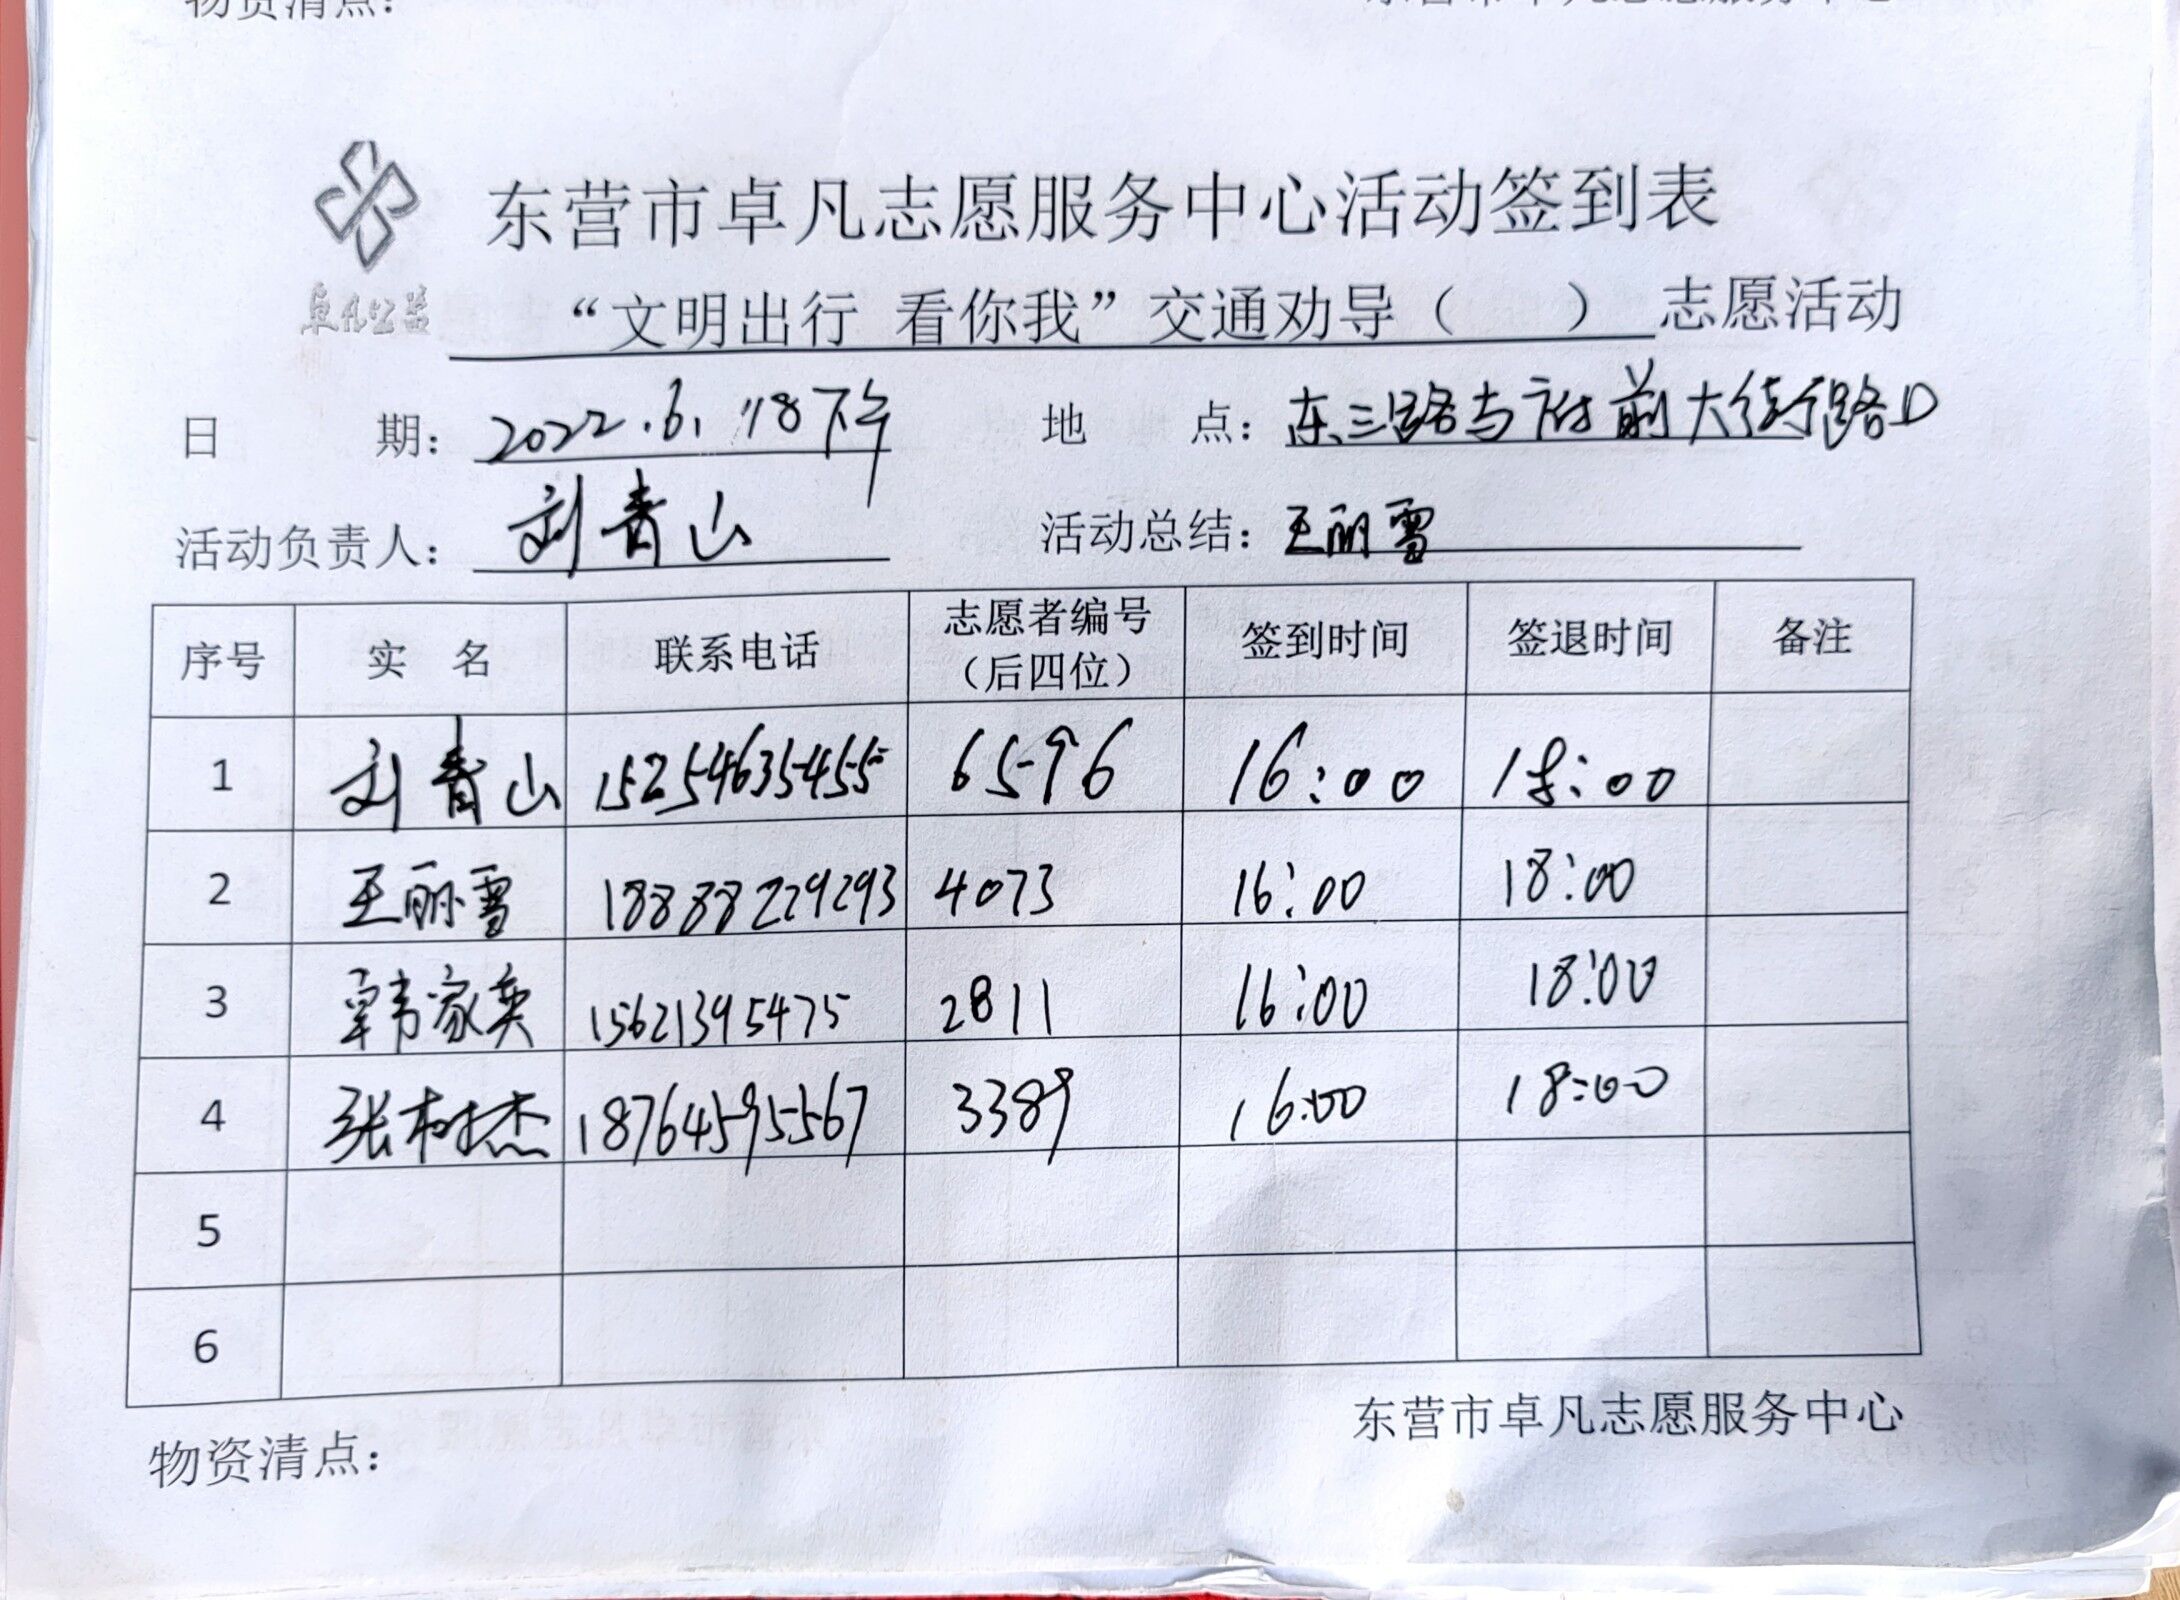 物资清点：
东营市卓凡志愿服务中心
东营市卓凡志愿服务中心活动签到表
卓凡公益
“文明出行 看你我”交通劝导（ ）志愿活动
日 期：2022.6.18下午 地 点：东三路与府前大街路口
活动负责人：刘青山 活动总结：王丽雪
序号 实 名 联系电话 志愿者编号（后四位） 签到时间 签退时间 备注
1 刘青山 15254635455 6596 16:00 18:00
2 王丽雪 18888229293 4073 16:00 18:00
3 覃韦家英 15621395475 2811 16:00 18:00
4 张树杰 18764595567 3389 16:00 18:00
5
6
东营市卓凡志愿服务中心
物资清点：